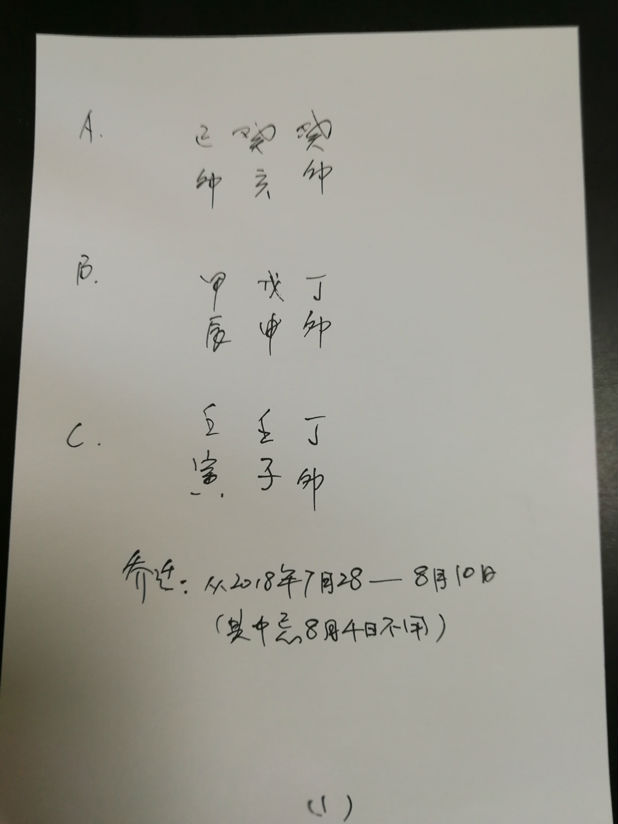 A. 己 癸 癸
卯 亥 卯
B. 甲 戊 丁
辰 申 卯
C. 壬 壬 丁
寅 子 卯
乔迁：从2018年7月28—8月10日
（其中忌8月4日不用）
（1）